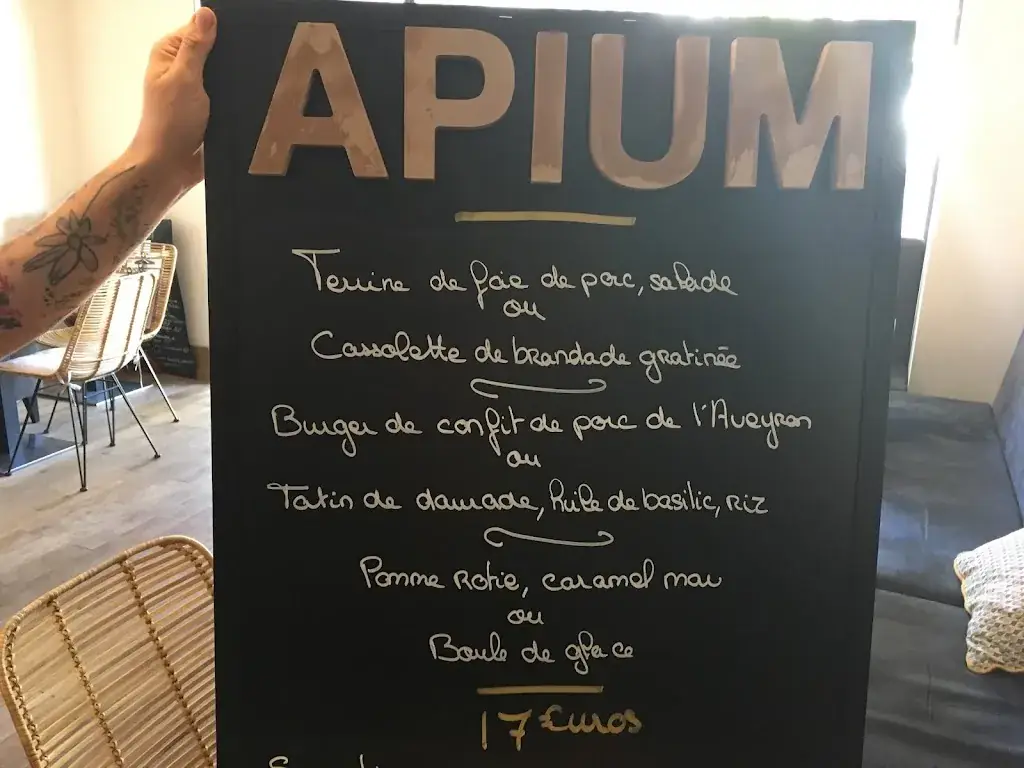 APIUM
Terrine de foie de porc, salade
ou
Cassolette de brandade gratinée
Burger de confit de porc de l'Aveyron
ou
Tatin de daurade, huile de basilic, riz
Pomme Rotie, caramel mou
ou
Boule de glace
17 Euros